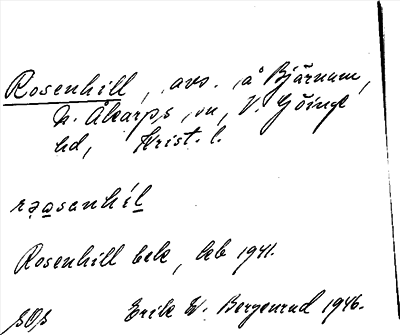 Rosenhill, avs. å Bjärnum,
N. Åkarps sn, V. Göinge
hd, Krist. l.
rǫasanhíl
Rosenhill bek, kb 1941.
Erik W. Bergenrud 1946.